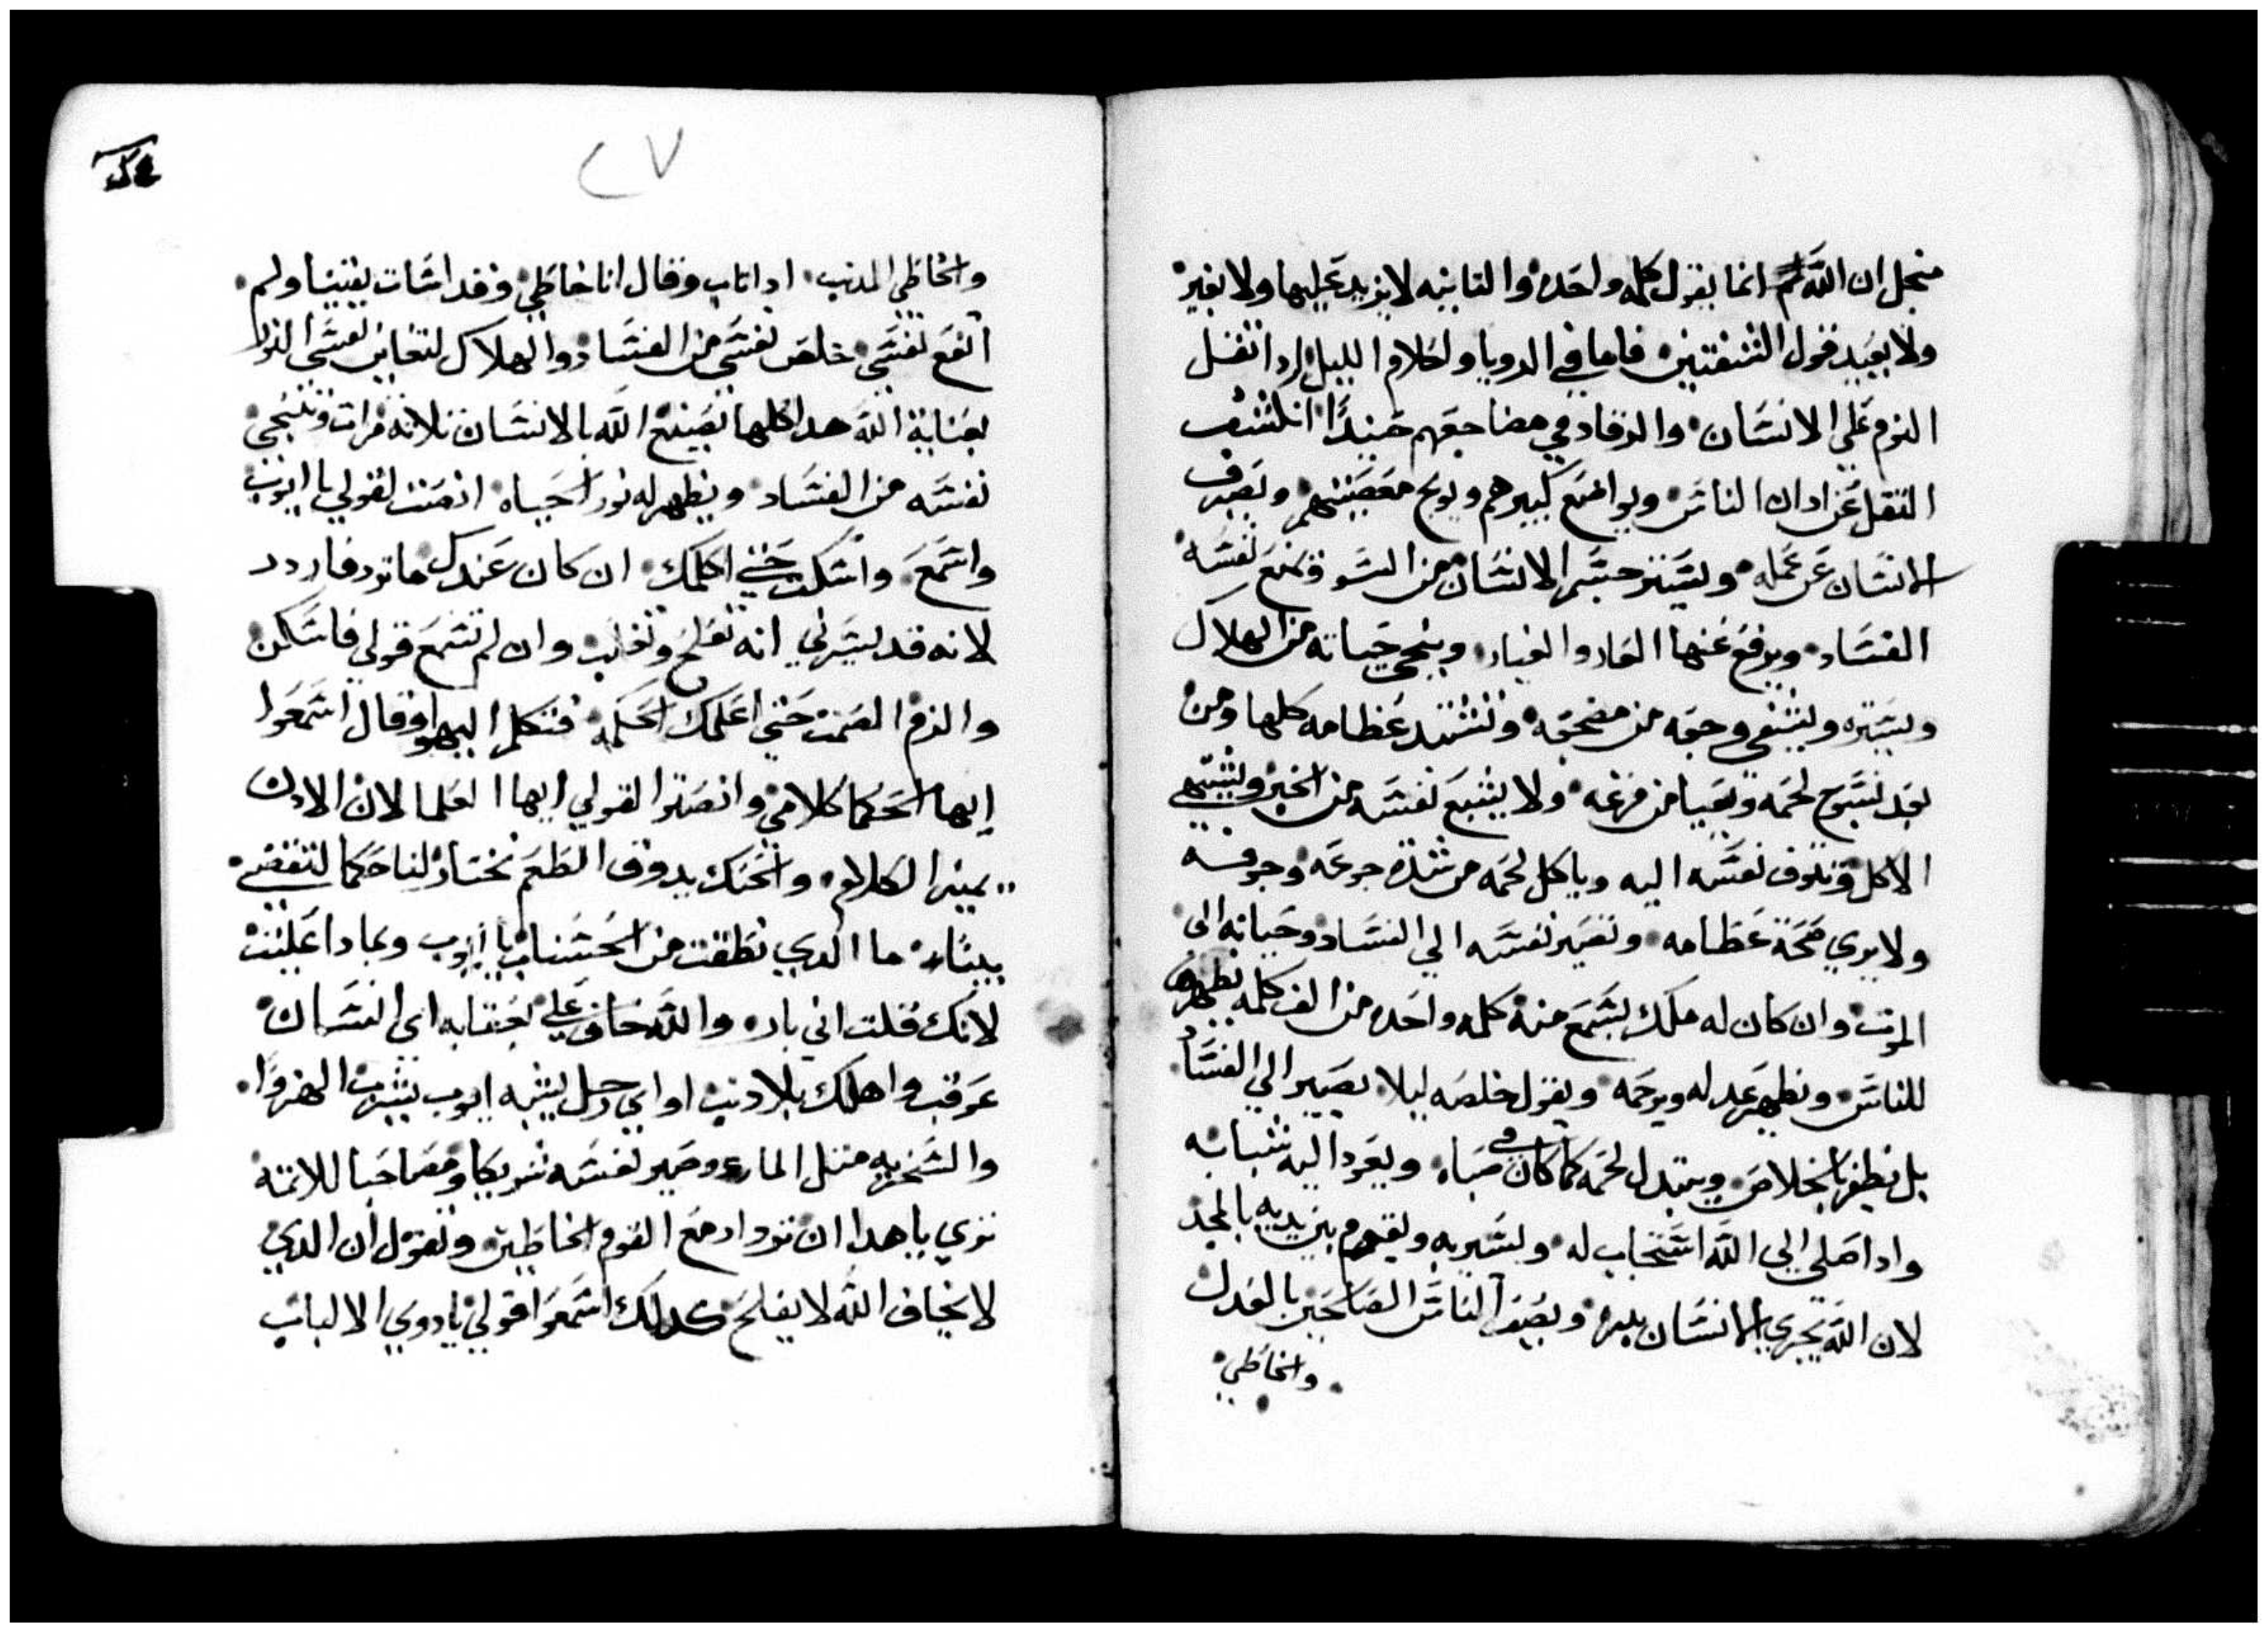 منجل ان الله انما يقول كلمه واحده والتانيه لا يزيد عليها ولا يغير
ولا يعيد قول الشفتين فاما في الرويا واحلام الليل ادا تقل
النوم علي الانسان والرقاد في مضاجعهم حنيدا انكشف
التقل عن ادان الناس ويواضع كبيرهم ويوبخ معصيتهم ويصرف
الانسان عن عمله ويستر جسم الانسان من السو ويمنع نفسه
الفساد ويرفع عنها العار والعيار وينجي حياته من الهلاك
ويستره ويشفي وجعه من مضجعه وتشتد عظامه كلها ومن
بعد يسبوح لحمه ويعيا من مرعه ولا يشبع نفسه من الخبز ويشتهي
الاكل وتتوق نفسه اليه وياكل لحمه من شدة جوعه وجوفه
ولا يري صحة عظامه وتصير نفسه الي الفساد وحياته الي
الموت وان كان له ملك يسمع منه كلمه واحده من الف كلمه يظهره
للناس ويظهر عدله ويرحمه ويقول خلصه ليلا يصير الي الفساد
بل يظفر بالخلاص ويتبدل لحمه كما كان في صباه ويعود اليه شبابه
وادا صلي الي الله استجاب له ويسر به ويقوم بين يديه بالمجد
لان الله يجزي الانسان ببره ويصير الناس الصالحين بالعدل
والخاطي
٢٧
والخاطي المدنب ادا تاب وقال انا خاطي وقد اسات يقينا ولم
انفع نفسي خلص نفسي من الفساد والهلاك لتعاين نفسي النور
بعناية الله هدا كلها يصنع الله بالانسان تلاتة مرات وتنجي
نفسه من الفساد ويظهر له نور الحياه انصت لقولي يا ايوب
واسمع واسكت حتي اكلمك ان كان عندك ما ترد فاردد
لانه قد يسرني انه تفلح وتغلب وان لم تسمع قولي فاسكن
والزم الصمت حتي اعلمك الحكمه فتكلم اليهو وقال اسمعوا
ايها الحكما كلامي وانصتوا لقولي ايها العلما لان الادن
يميز الكلام والحنك يدوق الطعم نختار لنا حكما لنقضي
بيننا ما الدي نطقت من الحسنات يا ايوب وبمادا علينت
لانك قلت اني بار والله حاف علي بعقابه اي انسان
عوقب واهلك بلا دنب او اي رجل يشبه ايوب يشرب الهزوا
والسخريه متل الما وصير نفسه شريكا ومصاحبا للاتمه
تري يا هدا ان تردد مع القوم الخاطين وتقول ان الدي
لا يخاف الله لا يفلح كدلك اسمعوا قولي يا دوي الالباب